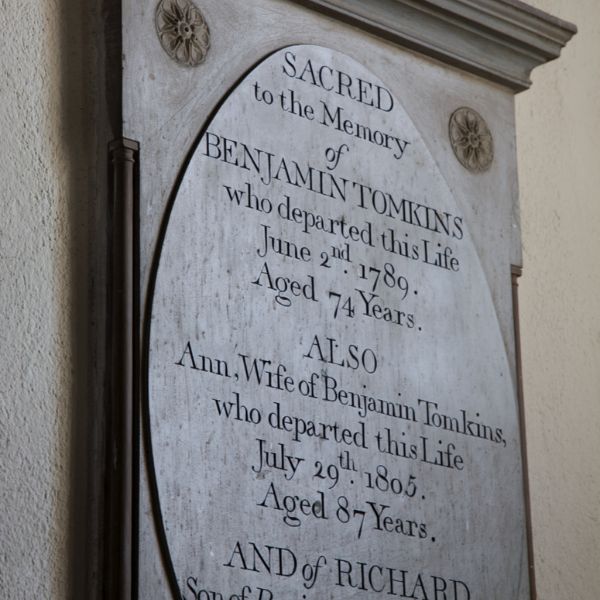 SACRED
to the Memory
of
BENJAMIN TOMKINS
who departed this Life
June 2nd. 1789.
Aged 74 Years.
ALSO
Ann, Wife of Benjamin Tomkins,
who departed this Life
July 29th. 1805.
Aged 87 Years.
AND of RICHARD
Son of